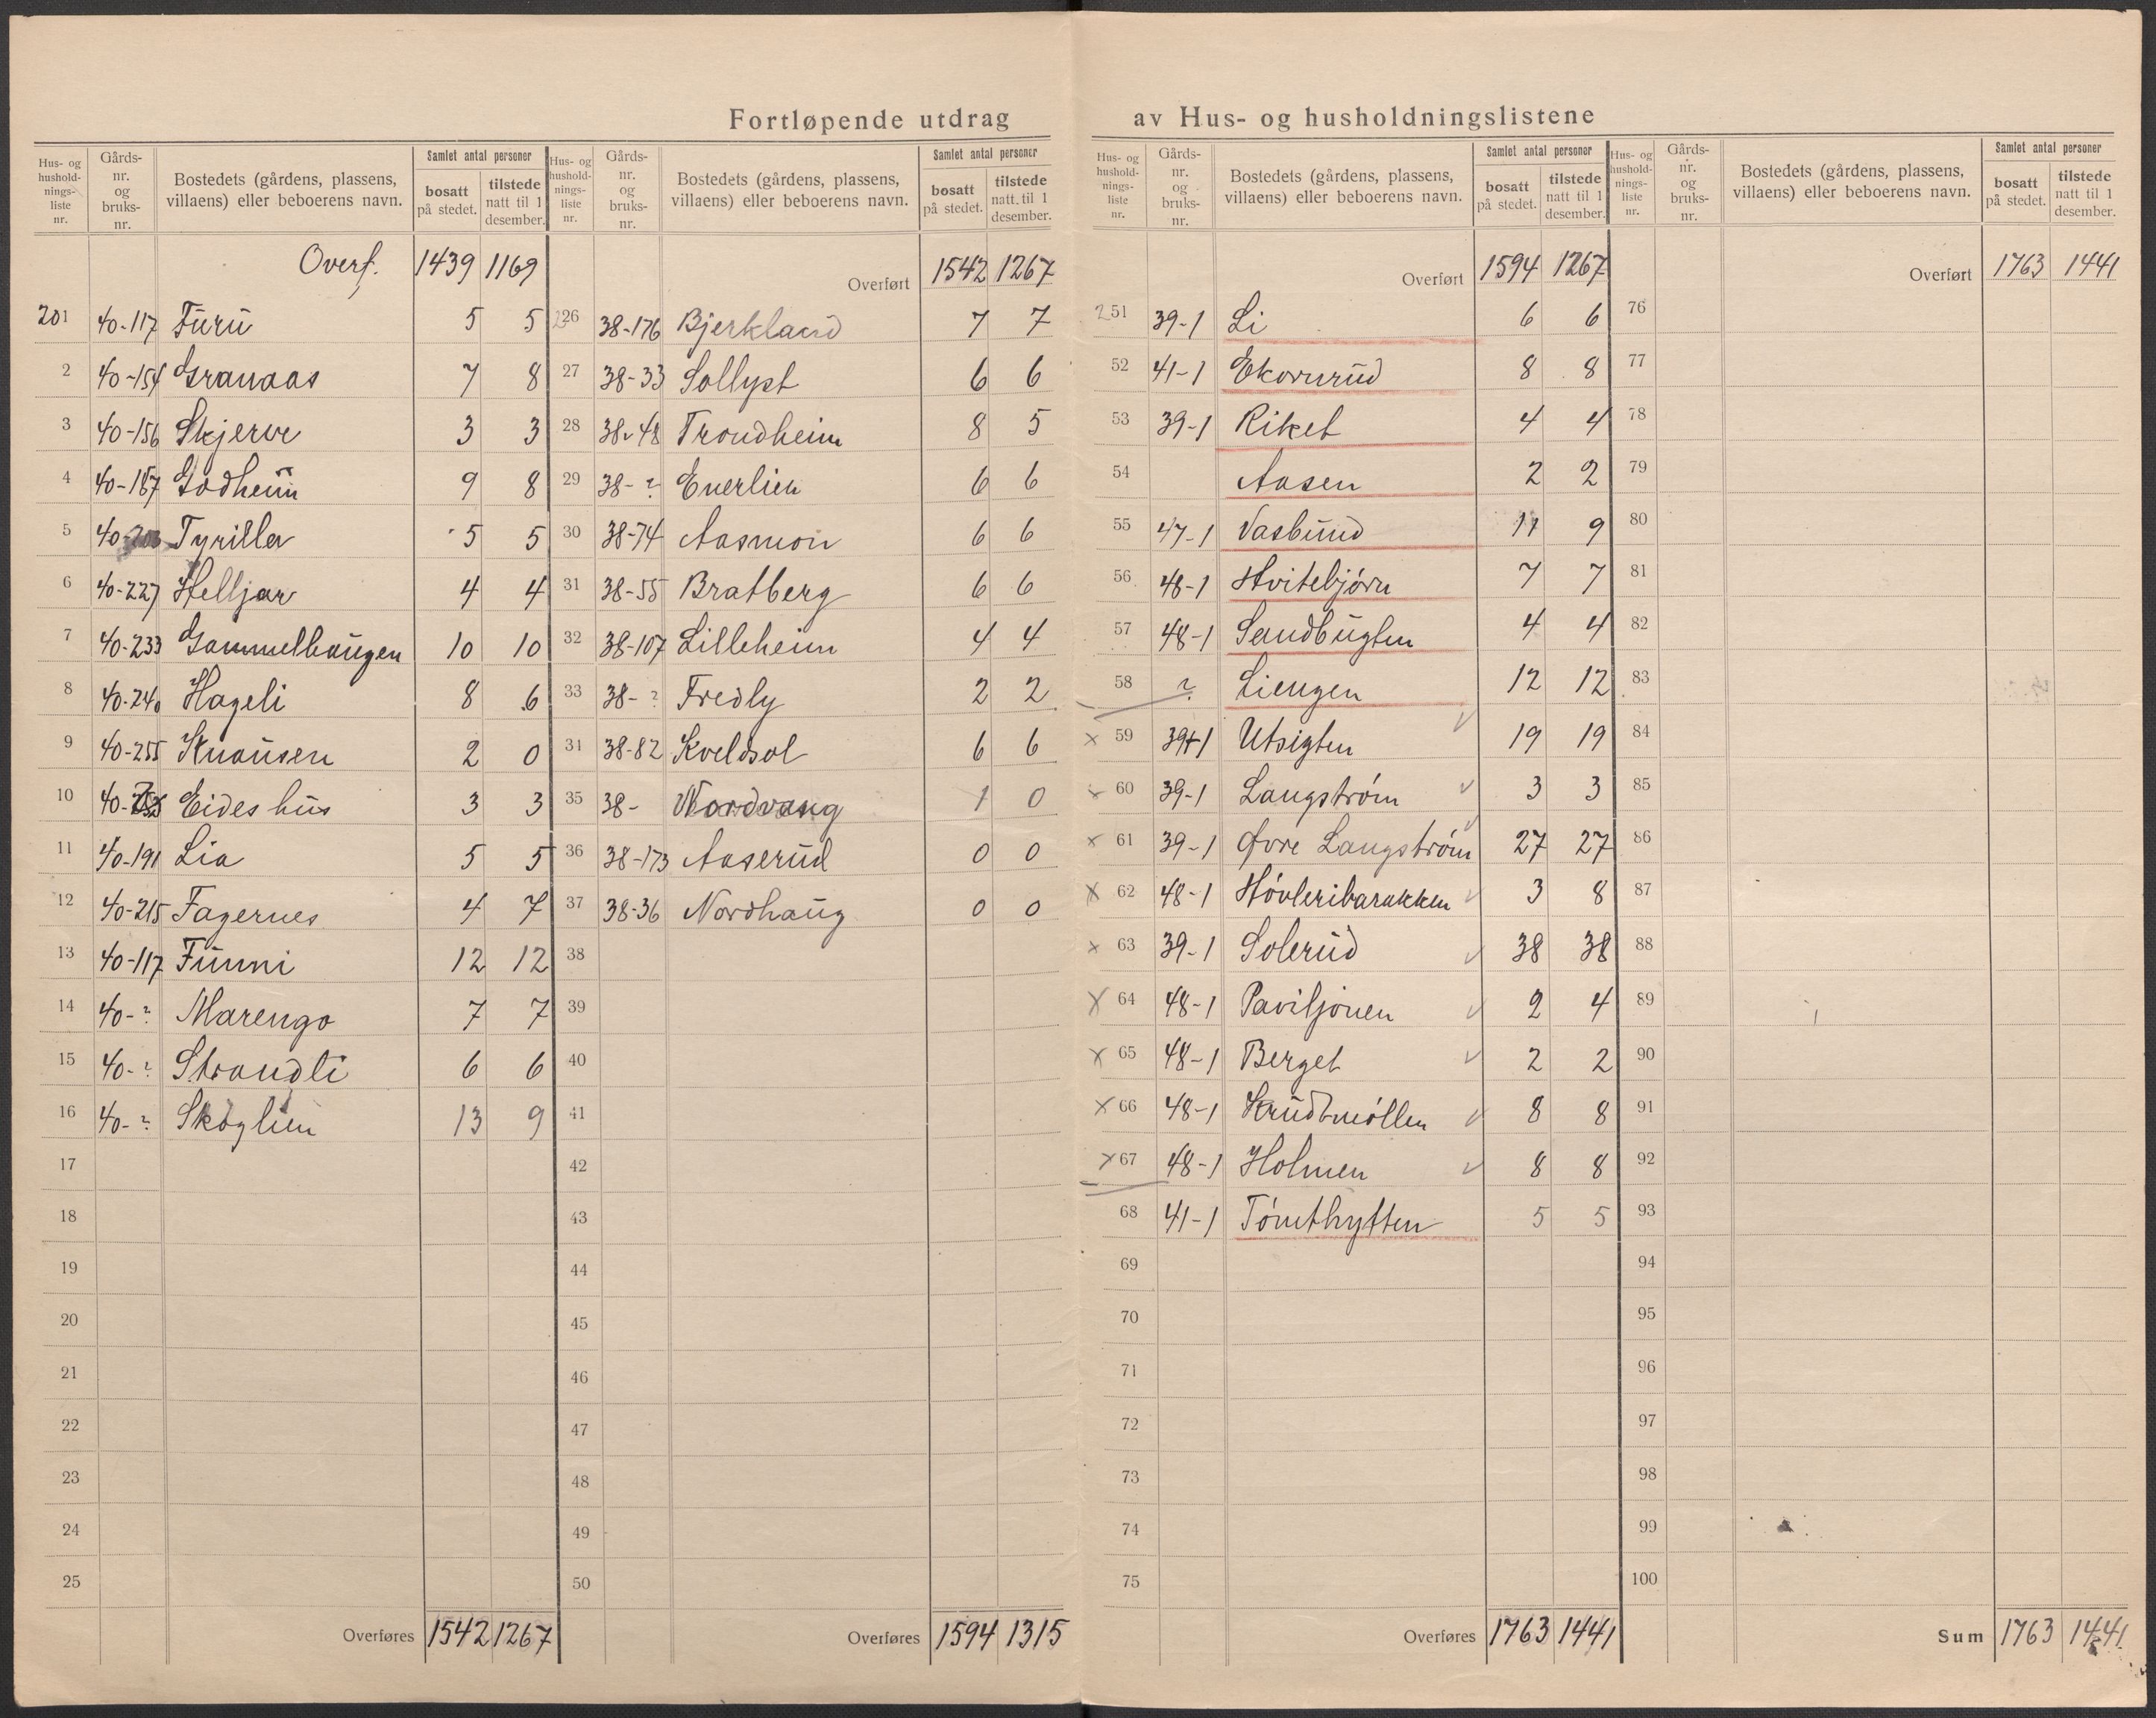 Fortløpende utdrag av Hus- og husholdningslistene
Hus- og husholdningsliste nr. Gårds-nr. og bruks-nr. Bostedets (gårdens, plassens, villaens) eller beboerens navn. Samlet antal personer bosatt på stedet. tilstede natt til 1 desember.
Overf. 1439 1169
201 40-117 Furu 5 5
2 40-154 Granaas 7 8
3 40-156 Skjerve 3 3
4 40-187 Godheim 9 8
5 40-203 Tyrilla 5 5
6 40-227 Helljar 4 4
7 40-233 Gammelhaugen 10 10
8 40-240 Hageli 8 6
9 40-255 Knausen 2 0
10 40- Eides hus 3 3
11 40-191 Lia 5 5
12 40-215 Fagernes 4 7
13 40-117 Funni 12 12
14 40-? Marengo 7 7
15 40-? Strandli 6 6
16 40-? Skoglien 13 9
17
18
19
20
21
22
23
24
25
Overføres 1542 1267
Hus- og husholdningsliste nr. Gårds-nr. og bruks-nr. Bostedets (gårdens, plassens, villaens) eller beboerens navn. Samlet antal personer bosatt på stedet. tilstede natt til 1 desember.
Overført 1542 1267
226 38-176 Bjerkland 7 7
27 38-33 Sollyst 6 6
28 38-48 Trondheim 8 5
29 38-? Enerlien 6 6
30 38-74 Aasmon 6 6
31 38-55 Bratberg 6 6
32 38-107 Lilleheim 4 4
33 38-? Fredly 2 2
31 38-82 Kveldsol 6 6
35 38- Nordvang 1 0
36 38-173 Aaserud 0 0
37 38-36 Nordhaug 0 0
38
39
40
41
42
43
44
45
46
47
48
49
50
Overføres 1594 1315
Hus- og husholdningsliste nr. Gårds-nr. og bruks-nr. Bostedets (gårdens, plassens, villaens) eller beboerens navn. Samlet antal personer bosatt på stedet. tilstede natt til 1 desember.
Overført 1594 1267
251 39-1 Li 6 6
52 41-1 Ekornrud 8 8
53 39-1 Riket 4 4
54 Aasen 2 2
55 47-1 Vasbund 11 9
56 48-1 Hvitebjørn 7 7
57 48-1 Sandbugten 4 4
58 ? Liengen 12 12
x 59 39-1 Utsigten 19 19
x 60 39-1 Langstrøm 3 3
x 61 39-1 Øvre Langstrøm 27 27
x 62 48-1 Høvleribarakken 3 8
x 63 39-1 Solerud 38 38
x 64 48-1 Paviljonen 2 4
x 65 48-1 Berget 2 2
x 66 48-1 Krudtmøllen 8 8
x 67 48-1 Holmen 8 8
68 41-1 Tømthytten 5 5
69
70
71
72
73
74
75
Overføres 1763 1441
Hus- og husholdningsliste nr. Gårds-nr. og bruks-nr. Bostedets (gårdens, plassens, villaens) eller beboerens navn. Samlet antal personer bosatt på stedet. tilstede natt til 1 desember.
Overført 1763 1441
76
77
78
79
80
81
82
83
84
85
86
87
88
89
90
91
92
93
94
95
96
97
98
99
100
Sum 1763 1441